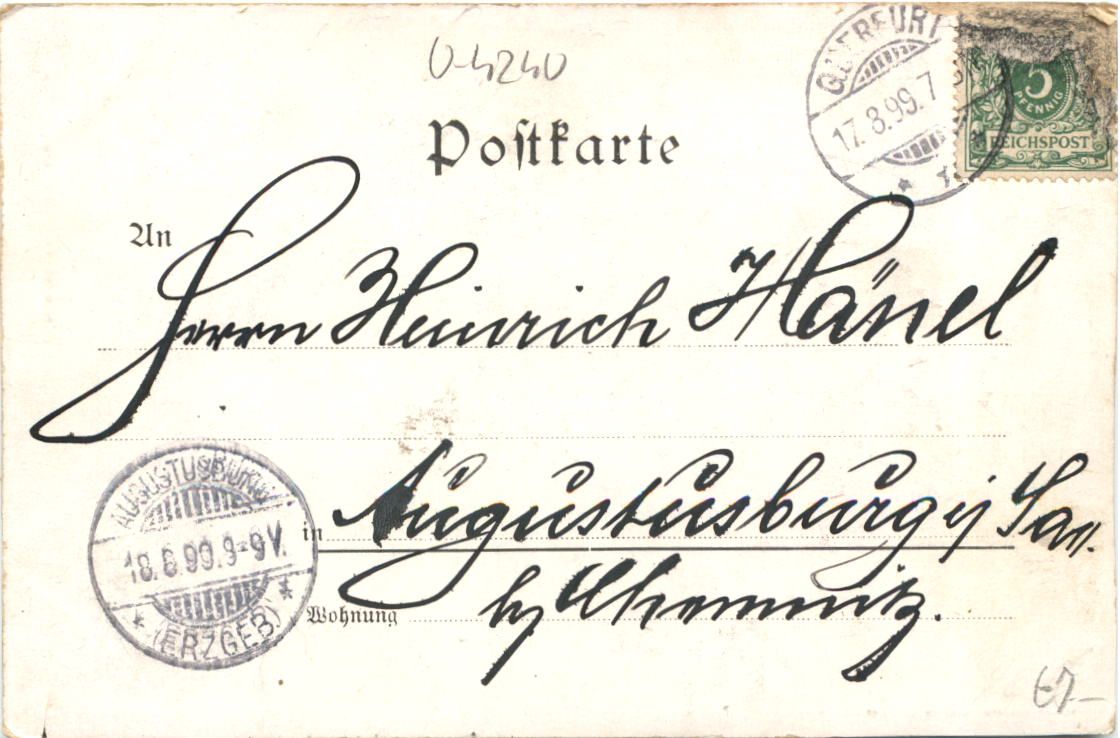 0-4240
Postkarte
QUERFURT
17.8.99.7
5
PFENNIG
REICHSPOST
An
Herrn Heinrich Hänel
AUGUSTUSBURG
18.8.99.9-9V.
* (ERZGEB) *
in Augustusburg i/ Sa.
Wohnung by Chemnitz.